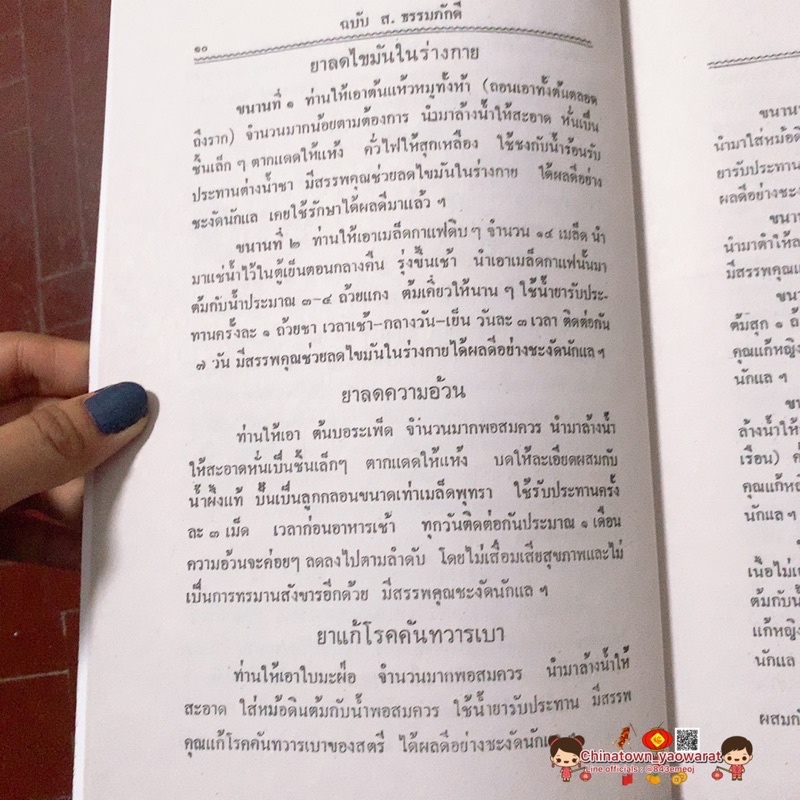 ฉบับ ส. ธรรมภักดี
๑๐
ยาลดไขมันในร่างกาย
ขนานที่ ๑ ท่านให้เอาต้นแห้วหมูทั้งห้า (ถอนเอาทั้งต้นตลอด
ถึงราก) จำนวนมากน้อยตามต้องการ นำมาล้างน้ำให้สะอาด หั่นเป็น
ชิ้นเล็ก ๆ ตากแดดให้แห้ง คั่วไฟให้สุกเหลือง ใช้ชงกับน้ำร้อนรับ
ประทานต่างน้ำชา มีสรรพคุณช่วยลดไขมันในร่างกาย ได้ผลดีอย่าง
ชะงัดนักแล เคยใช้รักษาได้ผลดีมาแล้ว ฯ
ขนานที่ ๒ ท่านให้เอาเมล็ดกาแฟดิบ ๆ จำนวน ๑๔ เมล็ด นำ
มาแช่น้ำไว้ในตู้เย็นตอนกลางคืน รุ่งขึ้นเช้า นำเอาเมล็ดกาแฟนั้นมา
ต้มกับน้ำประมาณ ๓-๔ ถ้วยแกง ต้มเคี่ยวให้นาน ๆ ใช้น้ำยารับประ-
ทานครั้งละ ๑ ถ้วยชา เวลาเช้า-กลางวัน-เย็น วันละ ๓ เวลา ติดต่อกัน
๗ วัน มีสรรพคุณช่วยลดไขมันในร่างกายได้ผลดีอย่างชะงัดนักแล ฯ
ยาลดความอ้วน
ท่านให้เอา ต้นบอระเพ็ด จำนวนมากพอสมควร นำมาล้างน้ำ
ให้สะอาดหั่นเป็นชิ้นเล็กๆ ตากแดดให้แห้ง บดให้ละเอียดผสมกับ
น้ำผึ้งแท้ ปั้นเป็นลูกกลอนขนาดเท่าเมล็ดพุทรา ใช้รับประทานครั้ง
ละ ๓ เม็ด เวลาก่อนอาหารเช้า ทุกวันติดต่อกันประมาณ ๑ เดือน
ความอ้วนจะค่อยๆ ลดลงไปตามลำดับ โดยไม่เสื่อมเสียสุขภาพและไม่
เป็นการทรมานสังขารอีกด้วย มีสรรพคุณชะงัดนักแล ฯ
ยาแก้โรคคันทวารเบา
ท่านให้เอาใบมะฝ่อ จำนวนมากพอสมควร นำมาล้างน้ำให้
สะอาด ใส่หม้อดินต้มกับน้ำพอสมควร ใช้น้ำยารับประทาน มีสรรพ
คุณแก้โรคคันทวารเบาของสตรี ได้ผลดีอย่างชะงัดนัก
ขนาน
นำมาใส่หม้อดิ
ยารับประทาน
ผลดีอย่างชะงั
ขนา
นำมาตำให้ล
มีสรรพคุณแ
ขน
ต้มสุก ๑ ถ้
คุณแก้หญิง
นักแล ฯ
ข
ล้างน้ำให้
เรือน) ค
คุณแก้ห
นักแล ฯ
เนื้อไม่
ต้มกับน้
แก้หญิง
นักแล
ผสมกั
Chinatown_yaowarat
Line officials : @843emeoj